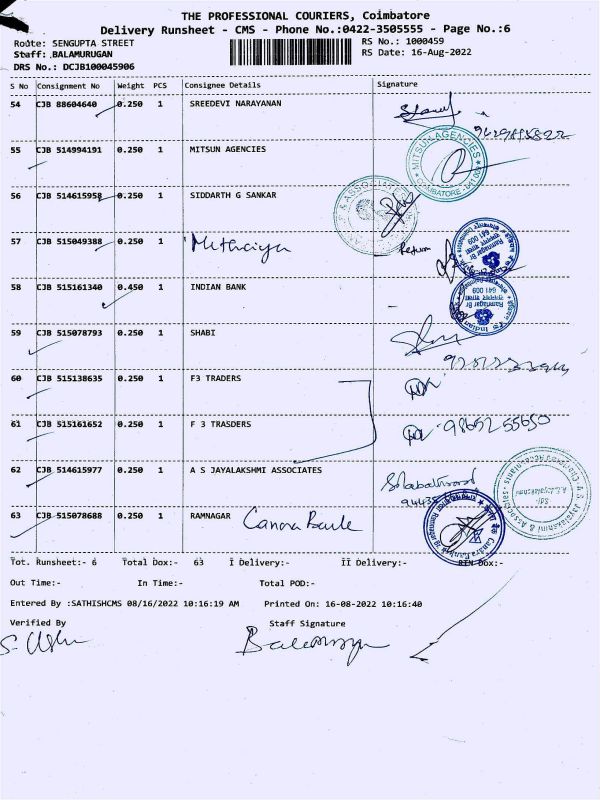 THE PROFESSIONAL COURIERS, Coimbatore
Delivery Runsheet - CMS - Phone No.:0422-3505555 - Page No.:6
Route: SENGUPTA STREET
RS No.: 1000459
Staff: .BALAMURUGAN
RS Date: 16-Aug-2022
DRS No.: DCJB100045906
S No Consignment No Weight PCS Consignee Details Signature
54 CJB 88604640 0.250 1 SREEDEVI NARAYANAN
55 CJB 514994191 0.250 1 MITSUN AGENCIES
MITSUN AGENCIES
56 CJB 514615958 0.250 1 SIDDARTH G SANKAR
57 CJB 515049388 0.250 1 Return
58 CJB 515161340 0.450 1 INDIAN BANK
59 CJB 515078793 0.250 1 SHABI
60 CJB 515138635 0.250 1 F3 TRADERS
61 CJB 515161652 0.250 1 F 3 TRASDERS 9865255650
62 CJB 514615977 0.250 1 A S JAYALAKSHMI ASSOCIATES
63 CJB 515078688 0.250 1 RAMNAGAR Canara
Tot. Runsheet:- 6 Total Dox:- 63 I Delivery:- II Delivery:- RTN Dox:-
Out Time:- In Time:- Total POD:-
Entered By :SATHISHCMS 08/16/2022 10:16:19 AM Printed On: 16-08-2022 10:16:40
Verified By Staff Signature